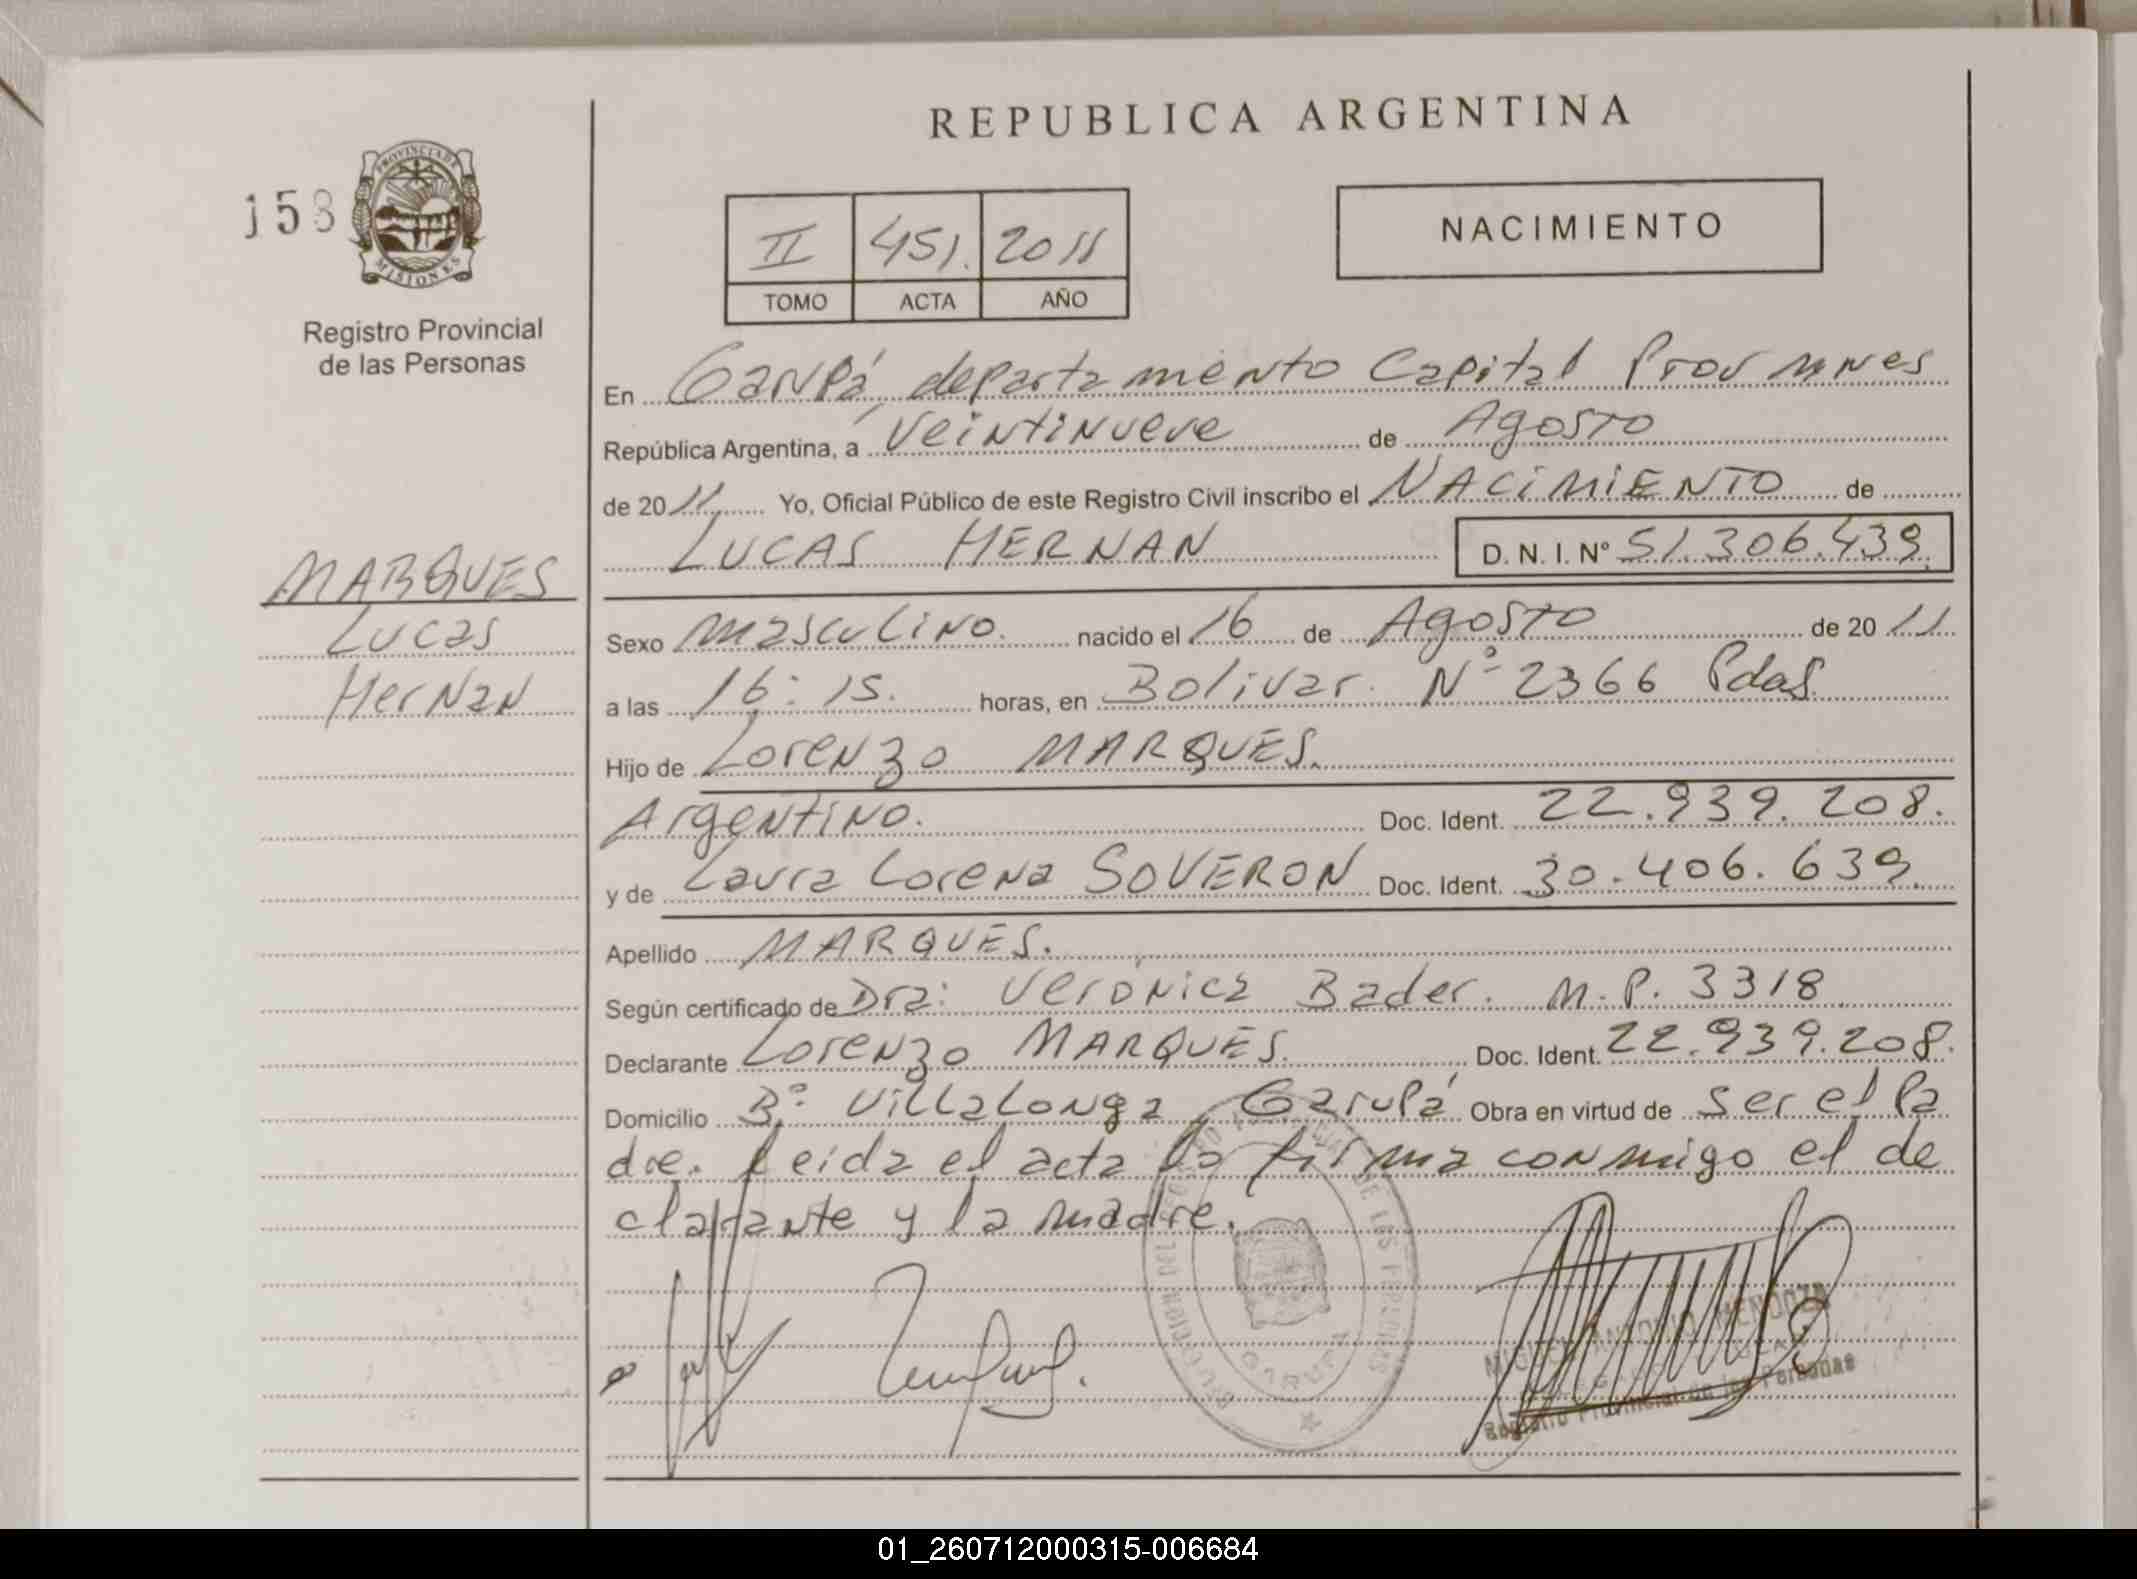 REPUBLICA ARGENTINA
158
PROVINCIA DE
MISIONES
Registro Provincial
de las Personas
II 451. 2011
TOMO ACTA AÑO
NACIMIENTO
En Garupá, departamento Capital Prov mnes
República Argentina, a Veintinueve de Agosto
de 2011 Yo, Oficial Público de este Registro Civil inscribo el NACIMIENTO de
LUCAS HERNAN D. N. I. N° 51.306.439
MARQUES
Lucas
HerNan
Sexo masculino. nacido el 16 de Agosto de 2011
a las 16:15. horas, en Bolivar. N° 2366 Pdas.
Hijo de Lorenzo MARQUES.
Argentino. Doc. Ident. 22.939.208.
y de Laura Lorena SOVERON Doc. Ident. 30.406.639.
Apellido MARQUES.
Según certificado de Dra: Verónica Bader. M.P. 3318
Declarante Lorenzo MARQUES. Doc. Ident. 22.939.208.
Domicilio B° Villalonga, Garupá Obra en virtud de ser el Pa
dre. Leida el acta la firma conmigo el de
clarante y la madre.
DE LAS PERSONAS
GARUPA
MIGUEL ANTONIO MENDOZA
Registro Provincial de las Personas
01_260712000315-006684